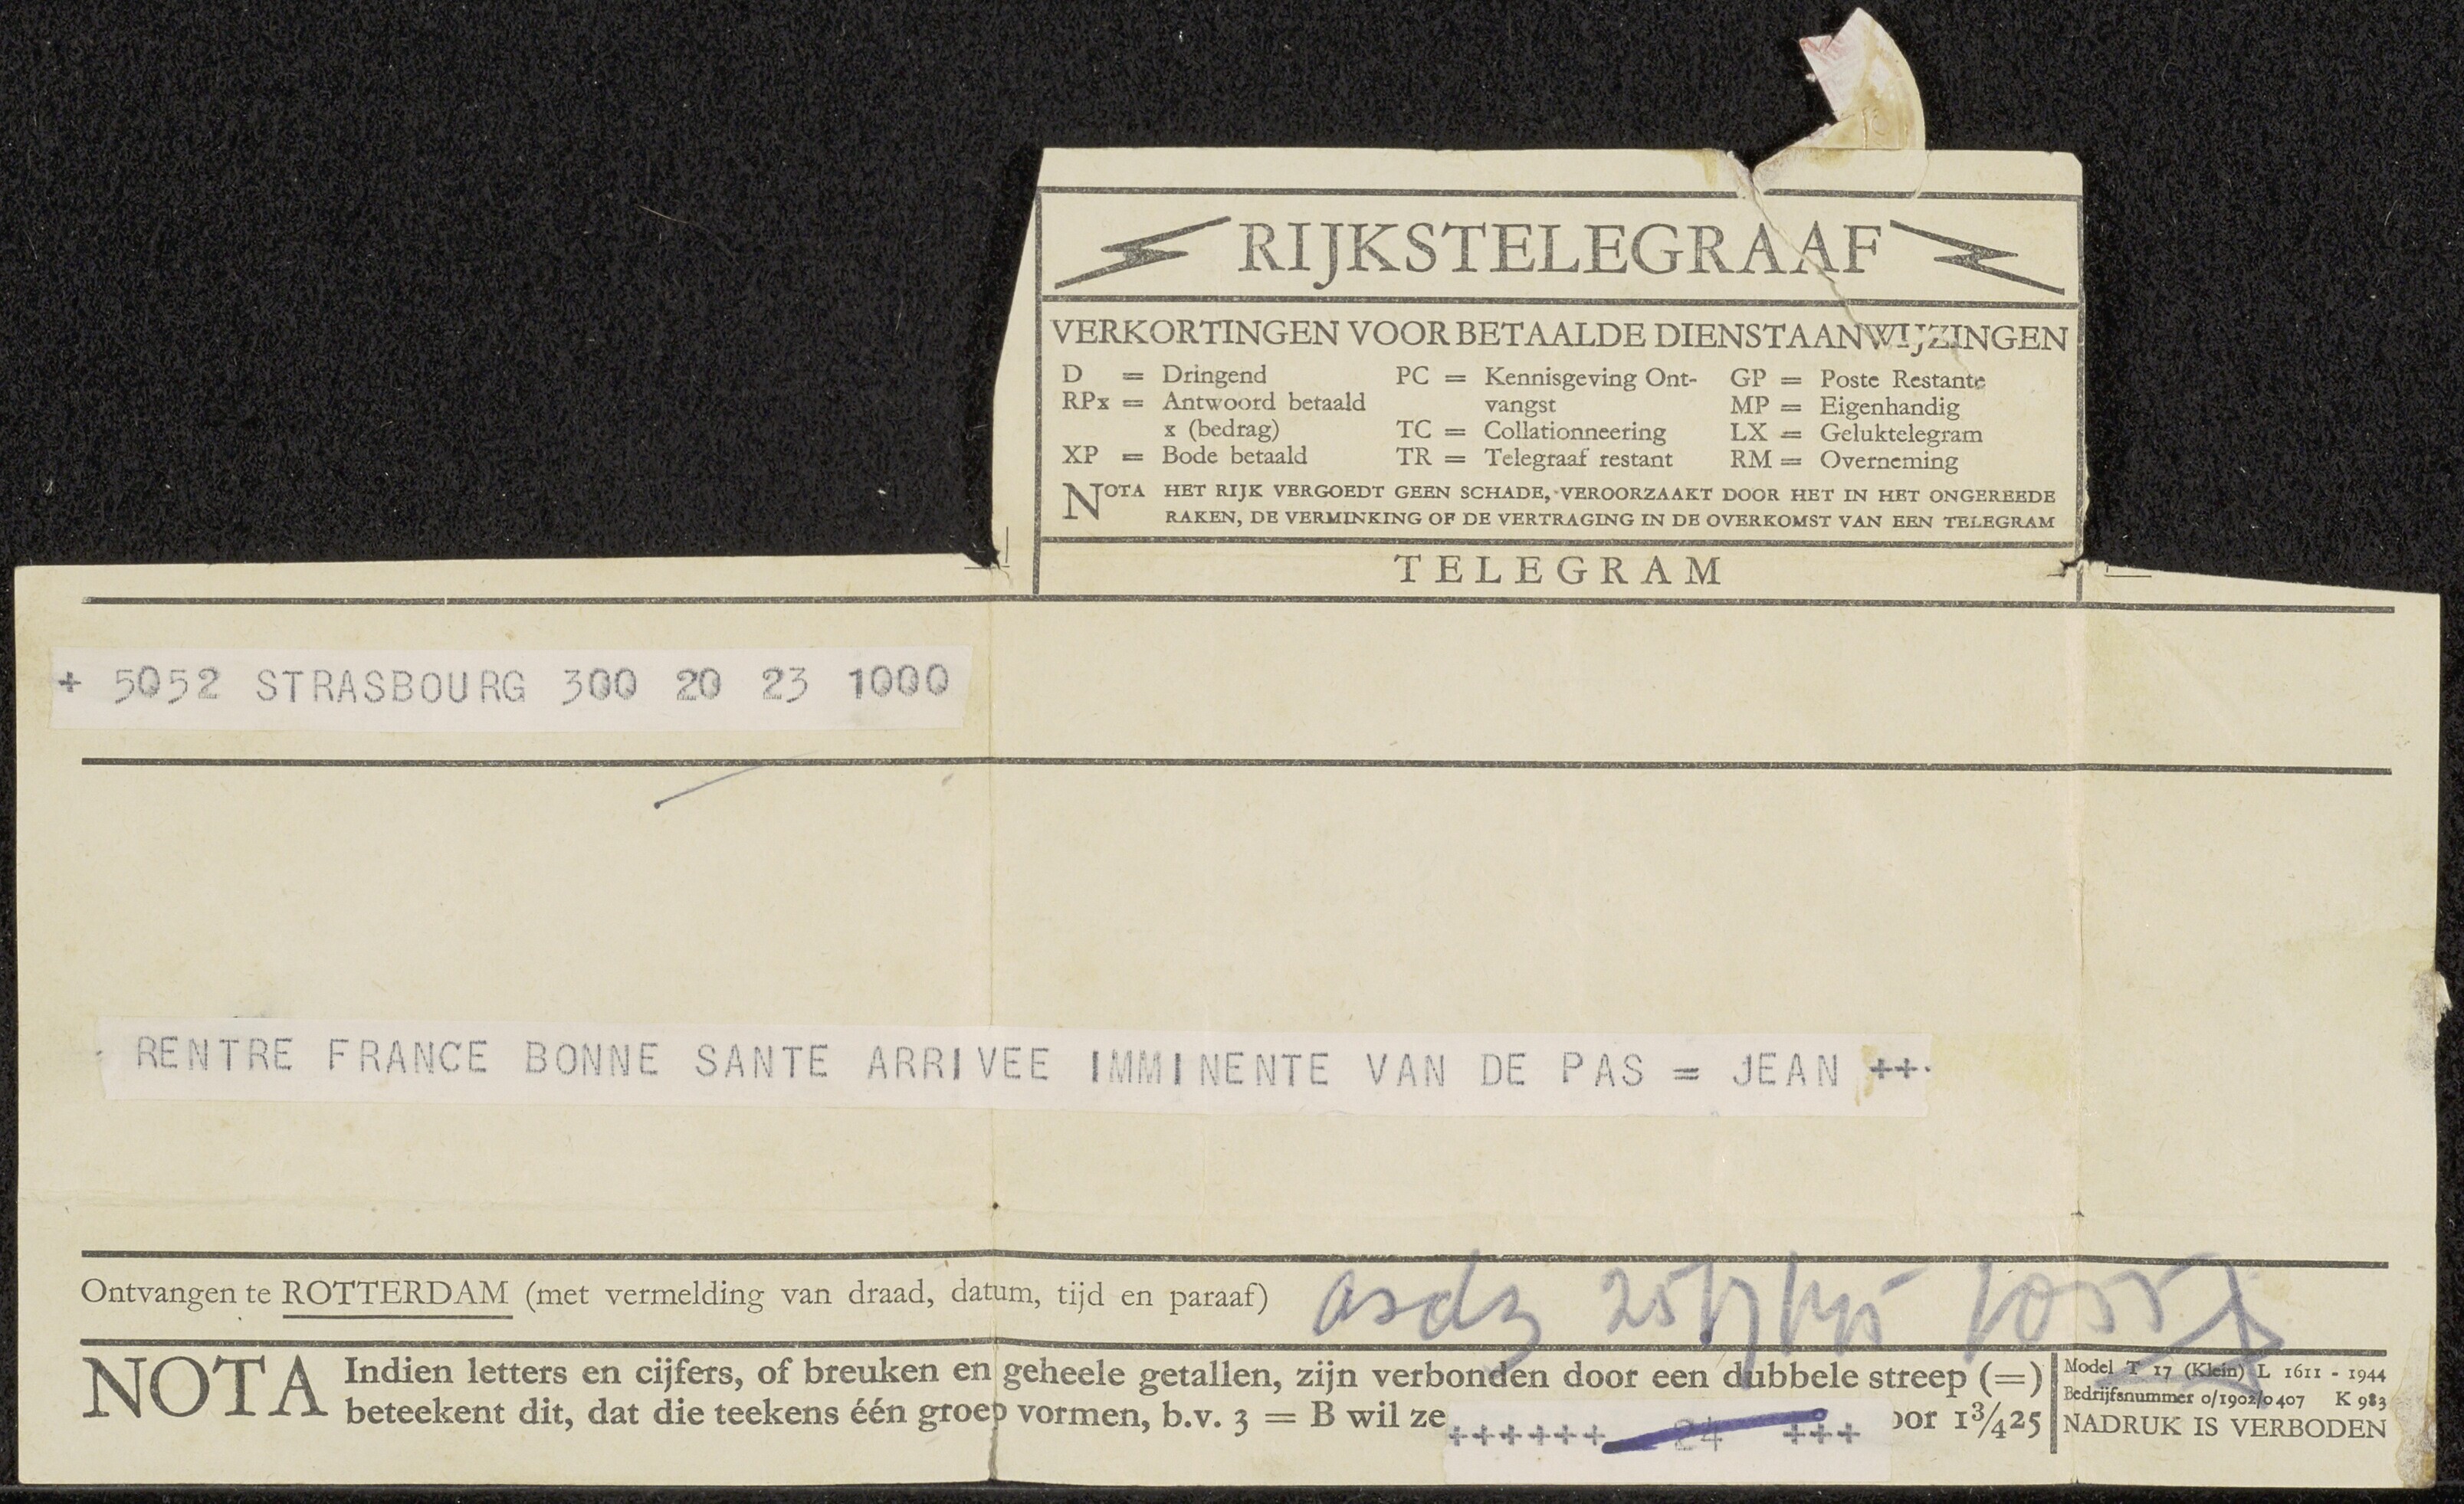 RIJKSTELEGRAAF
VERKORTINGEN VOOR BETAALDE DIENSTAANWIJZINGEN
D = Dringend
RPx = Antwoord betaald
x (bedrag)
XP = Bode betaald
PC = Kennisgeving Ont-
vangst
TC = Collationneering
TR = Telegraaf restant
GP = Poste Restante
MP = Eigenhandig
LX = Geluktelegram
RM = Overneming
NOTA HET RIJK VERGOEDT GEEN SCHADE, VEROORZAAKT DOOR HET IN HET ONGEREEDE
RAKEN, DE VERMINKING OF DE VERTRAGING IN DE OVERKOMST VAN EEN TELEGRAM
TELEGRAM
+ 5052 STRASBOURG 300 20 23 1000
RENTRE FRANCE BONNE SANTE ARRIVEE IMMINENTE VAN DE PAS = JEAN ++
Ontvangen te ROTTERDAM (met vermelding van draad, datum, tijd en paraaf)
NOTA Indien letters en cijfers, of breuken en geheele getallen, zijn verbonden door een dubbele streep (=)
beteekent dit, dat die teekens één groep vormen, b.v. 3 = B wil ze
++++++ 24 +++
oor 1¾25
Model T 17 (Klein) L 1611 - 1944
Bedrijfsnummer 0/1902/0407 K 983
NADRUK IS VERBODEN